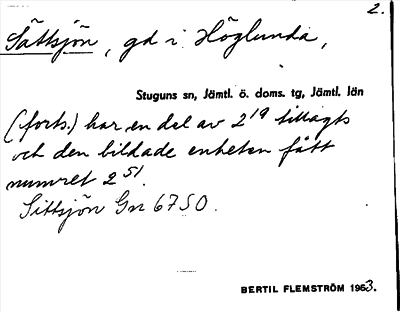 2.
Sättsjön, gd i Höglunda,
Stuguns sn, Jämtl. ö. doms. tg, Jämtl. län
(forts.) har en del av 2¹⁹ tillagts
och den bildade enheten fått
numret 2⁵¹.
Sittsjön Gn 6750.
BERTIL FLEMSTRÖM 1963.